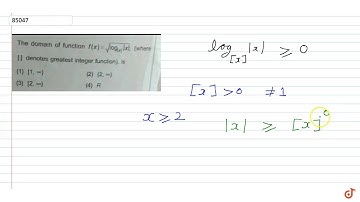 85047
The domain of function f(x) = √log[x] |x|, (where
[ ] denotes greatest integer function), is
(1) [1, ∞)
(2) (2, ∞)
(3) [2, ∞)
(4) R
log[x] |x| ≥ 0
[x] > 0 ≠ 1
x ≥ 2
|x| ≥ [x]⁰